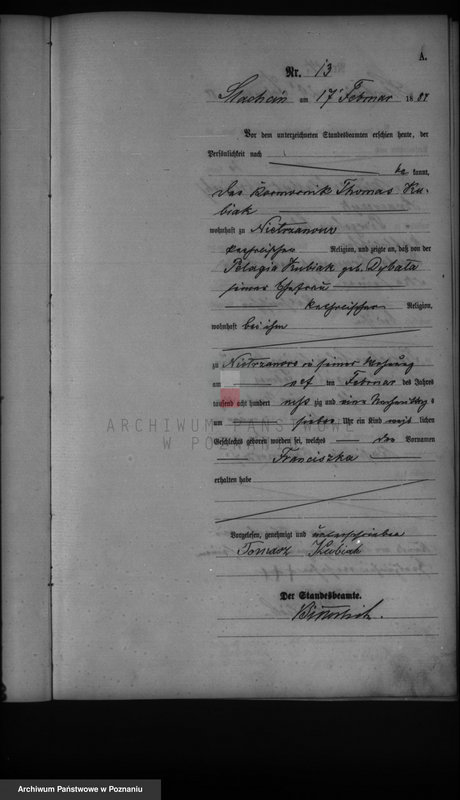 A.
Nr. 13
am 17 Februar 1881
Vor dem unterzeichneten Standesbeamten erschien heute, der
Persönlichkeit nach
be kannt,
Thomas Ku-
biak
wohnhaft zu
katholischer Religion, und zeigte an, daß von der
Pelagia Kubiak geb. Dybała
seiner Ehefrau
katholischer Religion,
wohnhaft bei ihm
zu in seiner Wohnung
am ten Februar des Jahres
tausend acht hundert acht zig und eins
um sieben Uhr ein Kind weib lichen
Geschlechts geboren worden sei, welches Vornamen
Franciszka
erhalten habe
Vorgelesen, genehmigt und unterschrieben
Tomasz Kubiak
Der Standesbeamte.
ARCHIWUM PAŃSTWOWE
W POZNANIU
Archiwum Państwowe w Poznaniu